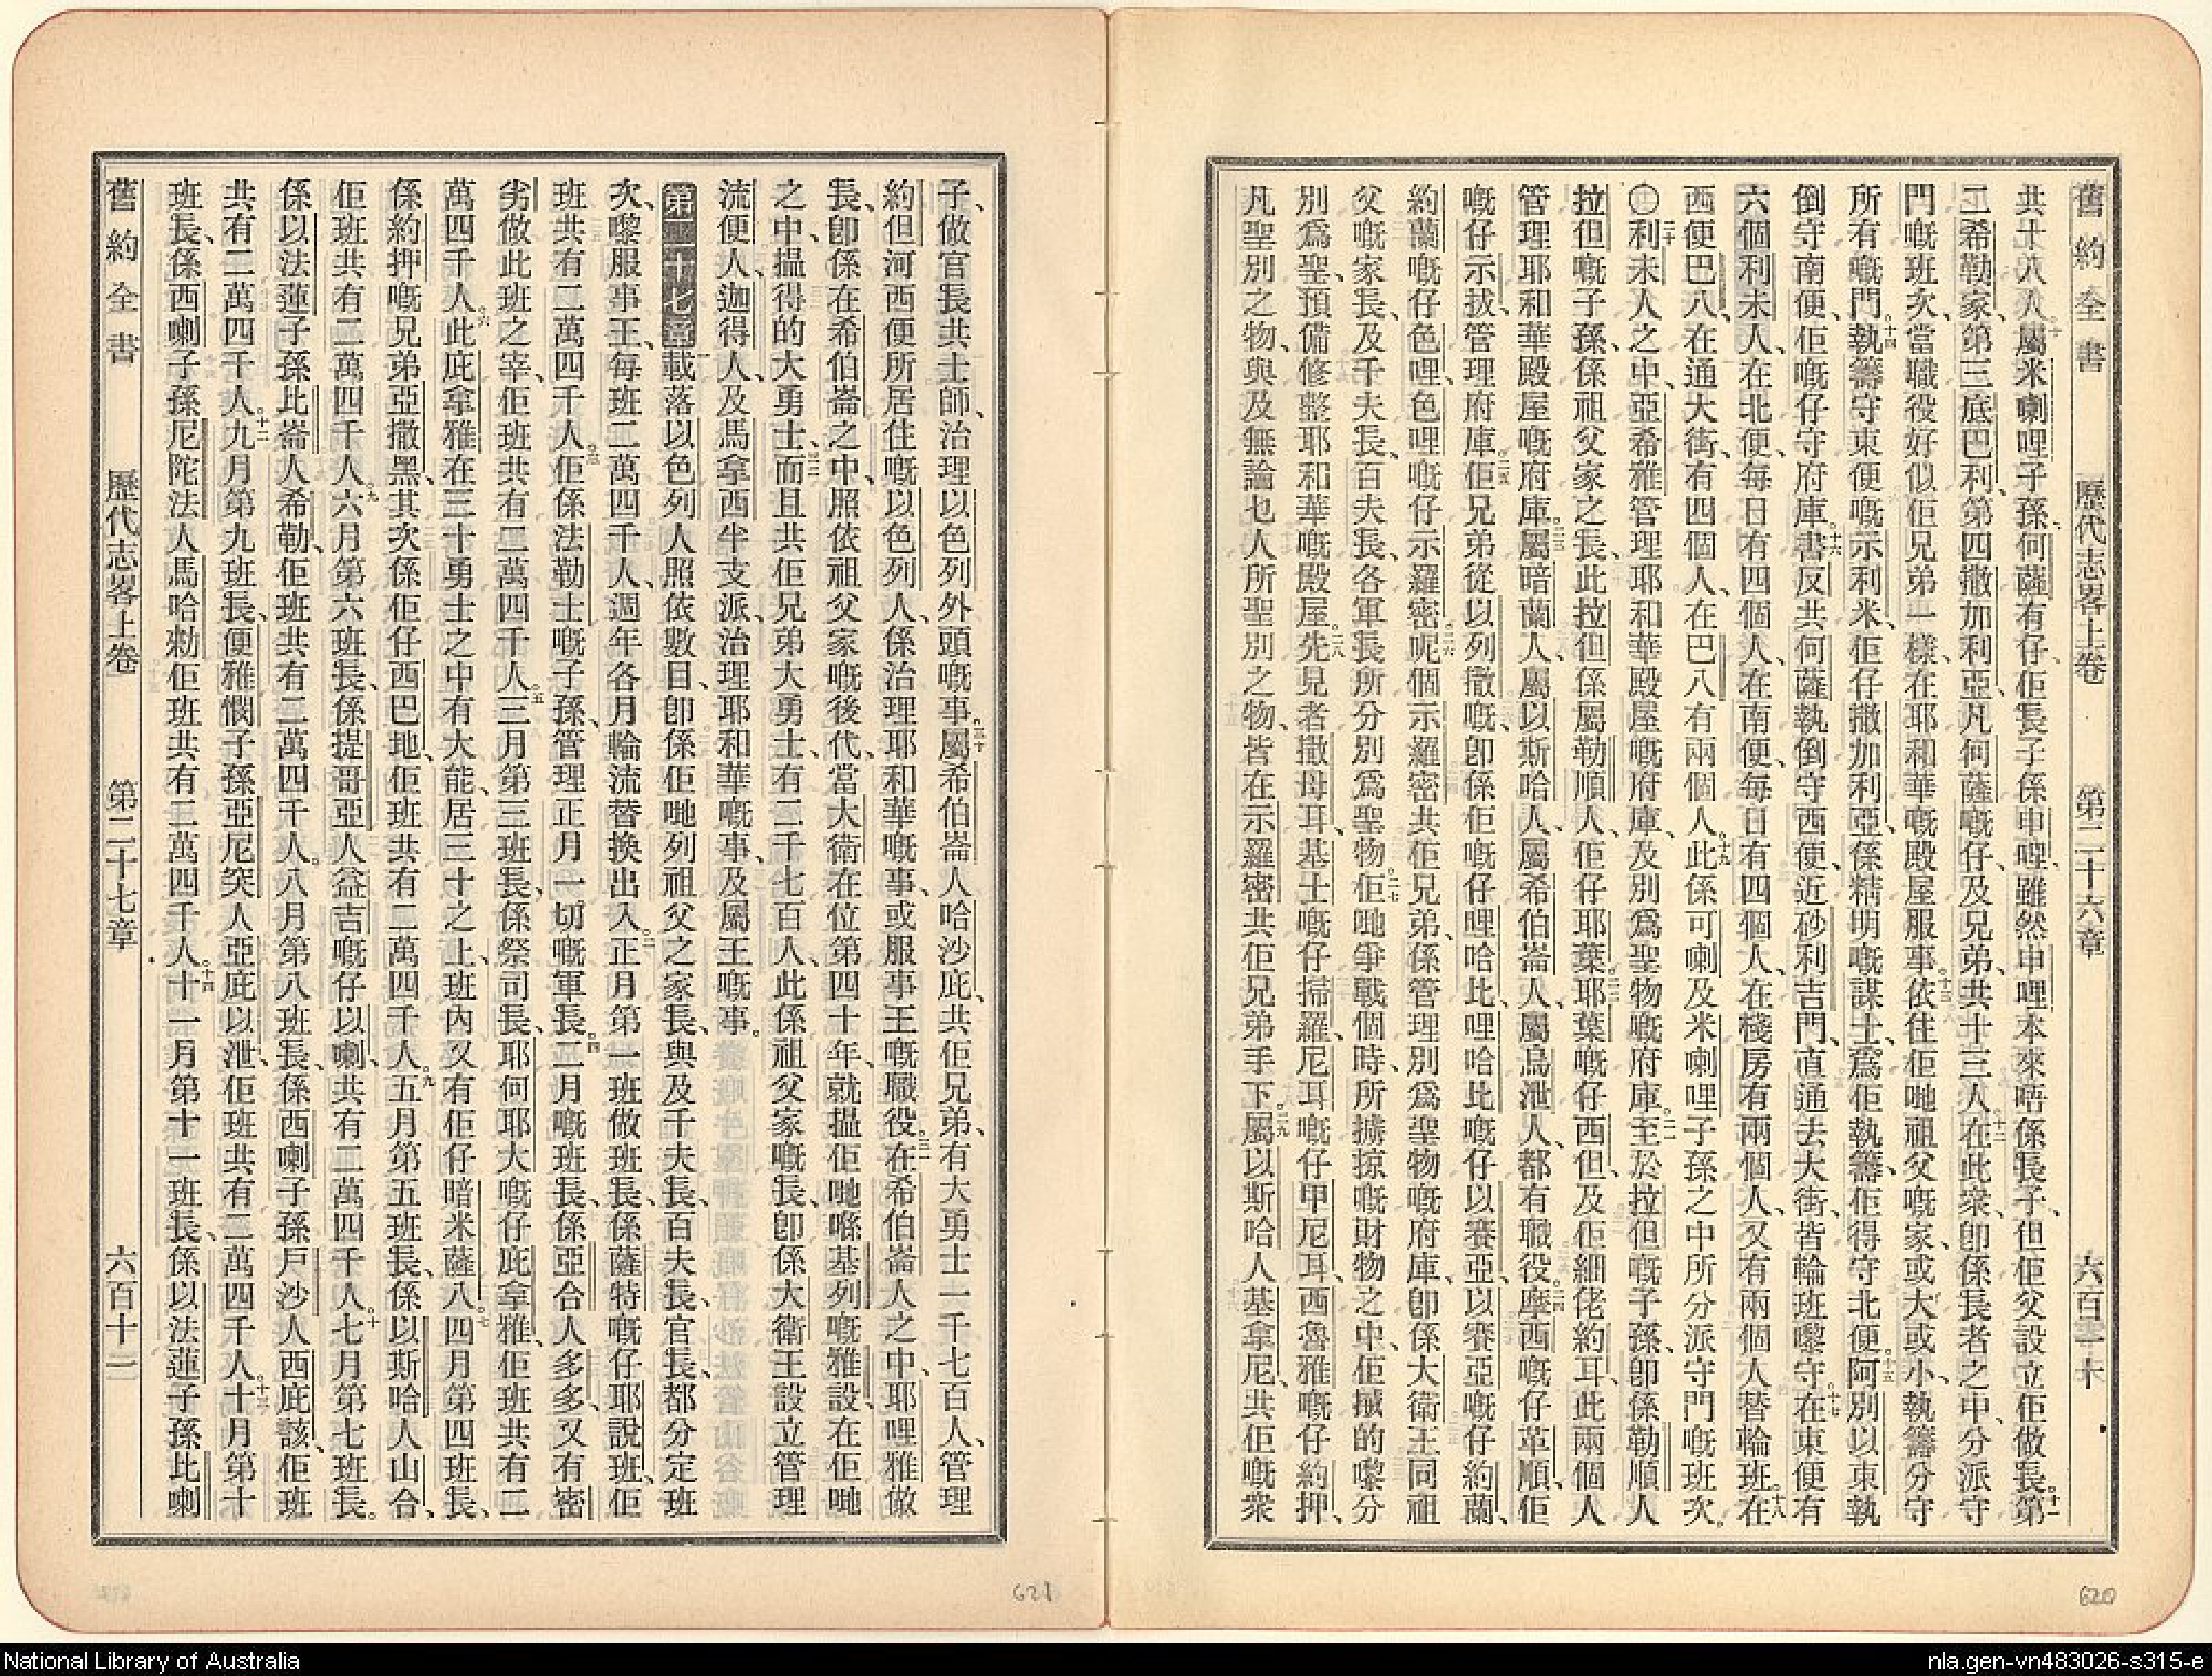 舊約全書 歷代志畧上卷 第二十六章 六百二十
共十八人。十屬米喇哩子孫、何薩有仔、佢長子係申哩、雖然申哩本來唔係長子、但佢父設立佢做長。十一第
二希勒家、第三底巴利、第四撒加利亞、凡何薩嘅仔、及兄弟、共十三人。十二在此衆、卽係長者之中、分派守
門嘅班次、當職役好似佢兄弟一樣、在耶和華嘅殿屋服事。十三依住佢哋祖父嘅家、或大或小、執籌分守
所有嘅門。十四執籌守東便嘅示利米、佢仔撒加利亞、係精明嘅謀士、爲佢執籌、佢得守北便。十五阿別以東執
倒守南便、佢嘅仔守府庫。十六書反共何薩執倒守西便、近砂利吉門、直通去大街、皆輪班嚟守。十七在東便有
六個利未人、在北便、每日有四個人、在南便、每日有四個人、在棧房有兩個人、又有兩個人替輪班。十八在
西便巴八、在通大街、有四個人、在巴八有兩個人。十九此係可喇及米喇哩子孫之中所分派守門嘅班次。
〇二十利未人之中、亞希雅管理耶和華殿屋嘅府庫、及別爲聖物嘅府庫。二一至於拉但嘅子孫、卽係勒順人
拉但嘅子孫、係祖父家之長、此拉但係屬勒順人、佢仔耶葉。二二耶葉嘅仔西但、及佢細佬約耳、此兩個人
管理耶和華殿屋嘅府庫。二三屬暗蘭人、屬以斯哈人、屬希伯崙人、屬烏泄人、都有職役。二四摩西嘅仔革順、佢
嘅仔示拔、管理府庫。二五佢兄弟從以列撒嘅、卽係佢嘅仔哩哈比、哩哈比嘅仔以賽亞、以賽亞嘅仔約蘭、
約蘭嘅仔色哩、色哩嘅仔示羅密。二六呢個示羅密共佢兄弟、係管理別爲聖物嘅府庫、卽係大衛王同祖
父嘅家長、及千夫長、百夫長、各軍長所分別爲聖物。二七佢哋爭戰個時、所擄掠嘅財物之中、佢搣的嚟分
別爲聖、預備修整耶和華嘅殿屋。二八先見者撒母耳、基士嘅仔掃羅、尼耳嘅仔甲尼耳、西魯雅嘅仔約押、
凡聖別之物、與及無論乜人所聖別之物、皆在示羅密共佢兄弟手下。二九屬以斯哈人基拿尼、共佢嘅衆
子、做官長共士師、治理以色列外頭嘅事。三十屬希伯崙人哈沙庇、共佢兄弟、有大勇士一千七百人、管理
約但河西便所居住嘅以色列人、係治理耶和華嘅事、或服事王嘅職役。三一在希伯崙人之中、耶哩雅做
長、卽係在希伯崙之中、照依祖父家嘅後代、當大衛在位第四十年、就揾佢哋喺基列嘅雅設、在佢哋
之中、揾得的大勇士。三二而且共佢兄弟大勇士、有二千七百人、此係祖父家嘅長、卽係大衛王設立管理
流便人、迦得人、及馬拿西半支派、治理耶和華嘅事、及屬王嘅事。
第二十七章 一載落以色列人照依數目、卽係佢哋列祖父之家長、與及千夫長、百夫長、官長、都分定班
次、嚟服事王、每班二萬四千人、週年各月輪流替換出入。二正月第一班做班長、係薩特嘅仔耶說班、佢
班共有二萬四千人。三佢係法勒士嘅子孫、管理正月一切嘅軍長。四二月嘅班長、係亞合人多多、又有密
劣做此班之宰、佢班共有二萬四千人。五三月第三班長、係祭司長、耶何耶大嘅仔庇拿雅、佢班共有二
萬四千人。六此庇拿雅在三十勇士之中有大能、居三十之上、班內又有佢仔暗米薩八。七四月第四班長、
係約押嘅兄弟亞撒黑、其次係佢仔西巴地、佢班共有二萬四千人。九五月第五班長、係以斯哈人山合、
佢班共有二萬四千人。九六月第六班長、係提哥亞人益吉嘅仔以喇、共有二萬四千人。十七月第七班長。
係以法蓮子孫比崙人希勒、佢班共有二萬四千人。八月第八班長、係西喇子孫戶沙人西庇該、佢班
共有二萬四千人。十二九月第九班長、便雅憫子孫亞尼突人亞庇以泄、佢班共有二萬四千人。十三十月第十
班長、係西喇子孫尼陀法人馬哈勑、佢班共有二萬四千人。十四十一月第十一班長、係以法蓮子孫比喇
舊約全書 歷代志畧上卷 第二十七章 六百十二一
621
620
National Library of Australia
nla.gen-vn483026-s315-e